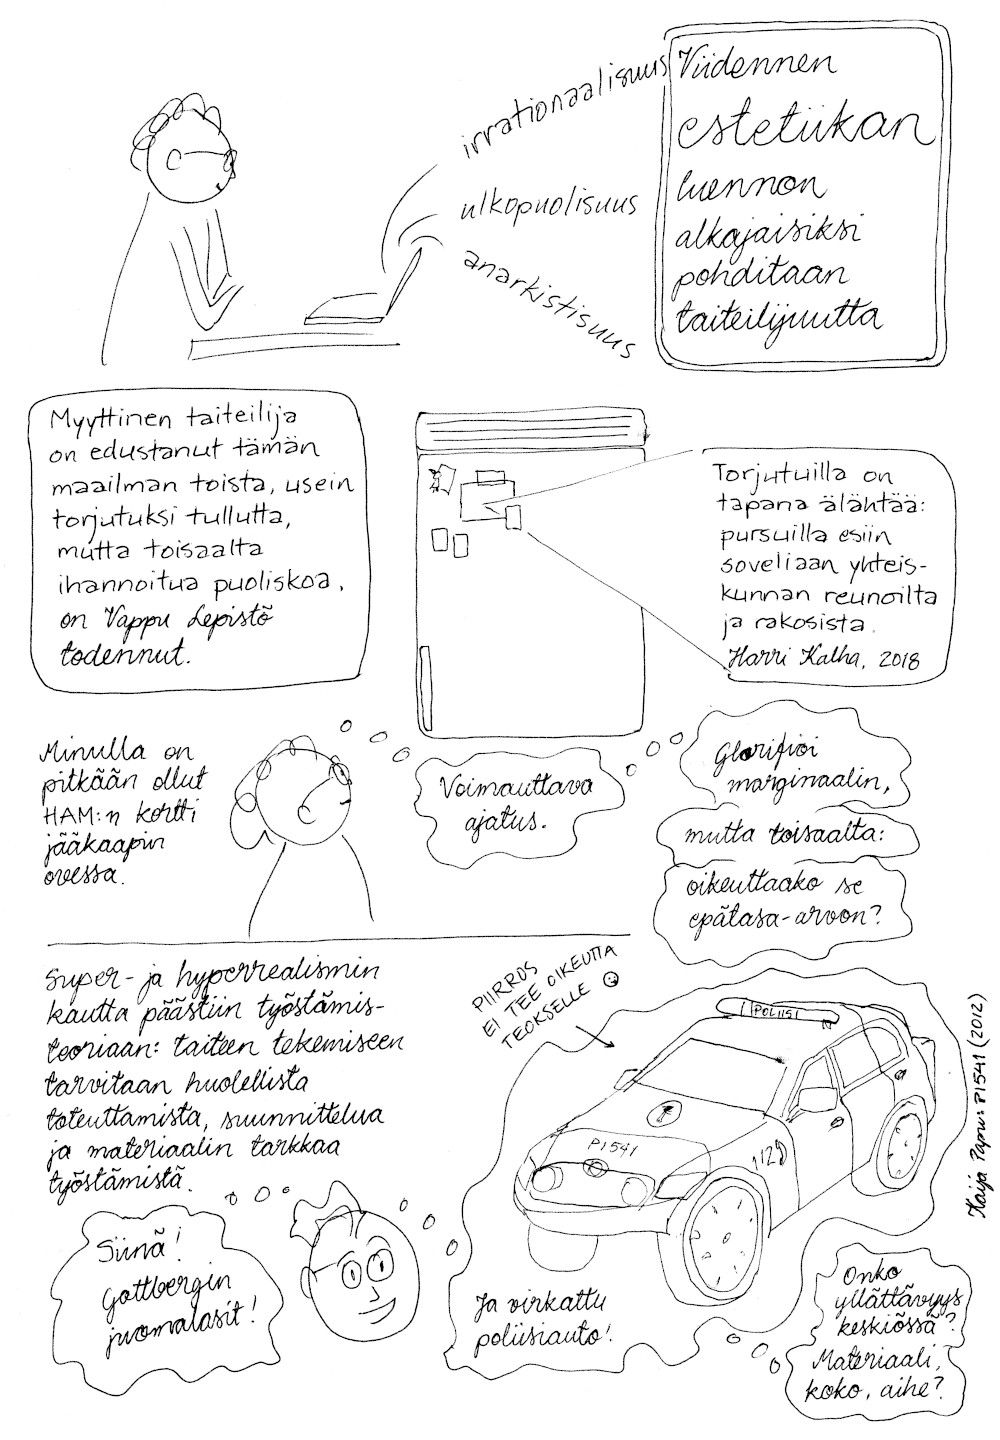 irrationaalisuus
ulkopuolisuus
anarkistisuus
Viidennen
estetiikan
luennon
alkajaisiksi
pohditaan
taiteilijuutta
Myyttinen taiteilija
on edustanut tämän
maailman toista, usein
torjutuksi tullutta,
mutta toisaalta
ihannoitua puoliskoa,
on Vappu Lepistö
todennut.
Torjutuilla on
tapana älähtää:
pursuilla esiin
soveliaan yhteis-
kunnan reunoilta
ja rakosista.
Harri Kalha, 2018
Minulla on
pitkään ollut
HAM:n kortti
jääkaapin
ovessa.
Voimauttava
ajatus.
Glorifioi
marginaalin,
mutta toisaalta:
oikeuttaako se
epätasa-arvoon?
Super- ja hyperrealismin
kautta päästiin työstämis-
teoriaan: taiteen tekemiseen
tarvitaan huolellista
toteuttamista, suunnittelua
ja materiaalin tarkkaa
työstämistä.
Siinä!
Gottbergin
juomalasit!
PIIRROS
EI TEE OIKEUTTA
TEOKSELLE
POLIISI
P1541
112
Ja virkattu
poliisiauto!
Kaija Papu: P1541 (2012)
Onko
yllättävyys
keskiössä?
Materiaali,
koko, aihe?